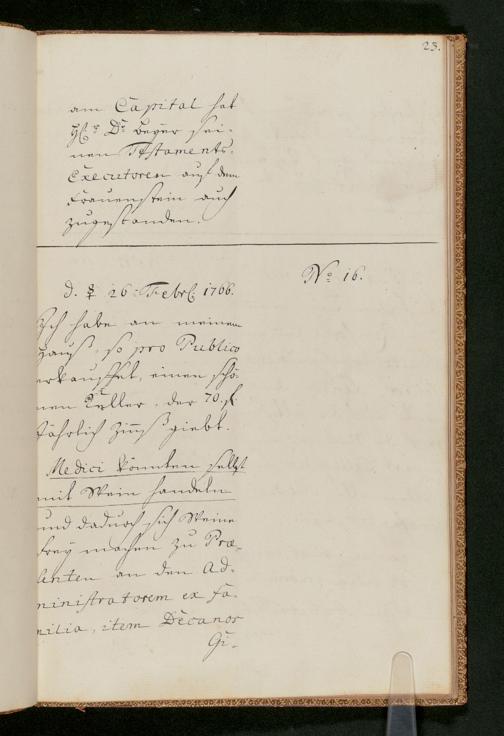 23.
am Capital hat
H. Dr. Beyer sei-
nen Testaments-
Executoren auf dem
Frauenstein auch
zugestanden.
No. 16.
d. ☿ 26. Febr. 1766.
Ich habe an meinem
Hauß, so pro Publico
erkauffet, einen schö-
nen Keller, der 70. fl.
Jährlich Zinnß giebt.
Medici könnten selbst
mit Wein handeln
und dadurch sich Weine
frey machen zu Præ-
senten an den Ad-
ministratorem ex fa-
milia, item Decanos
Gi-